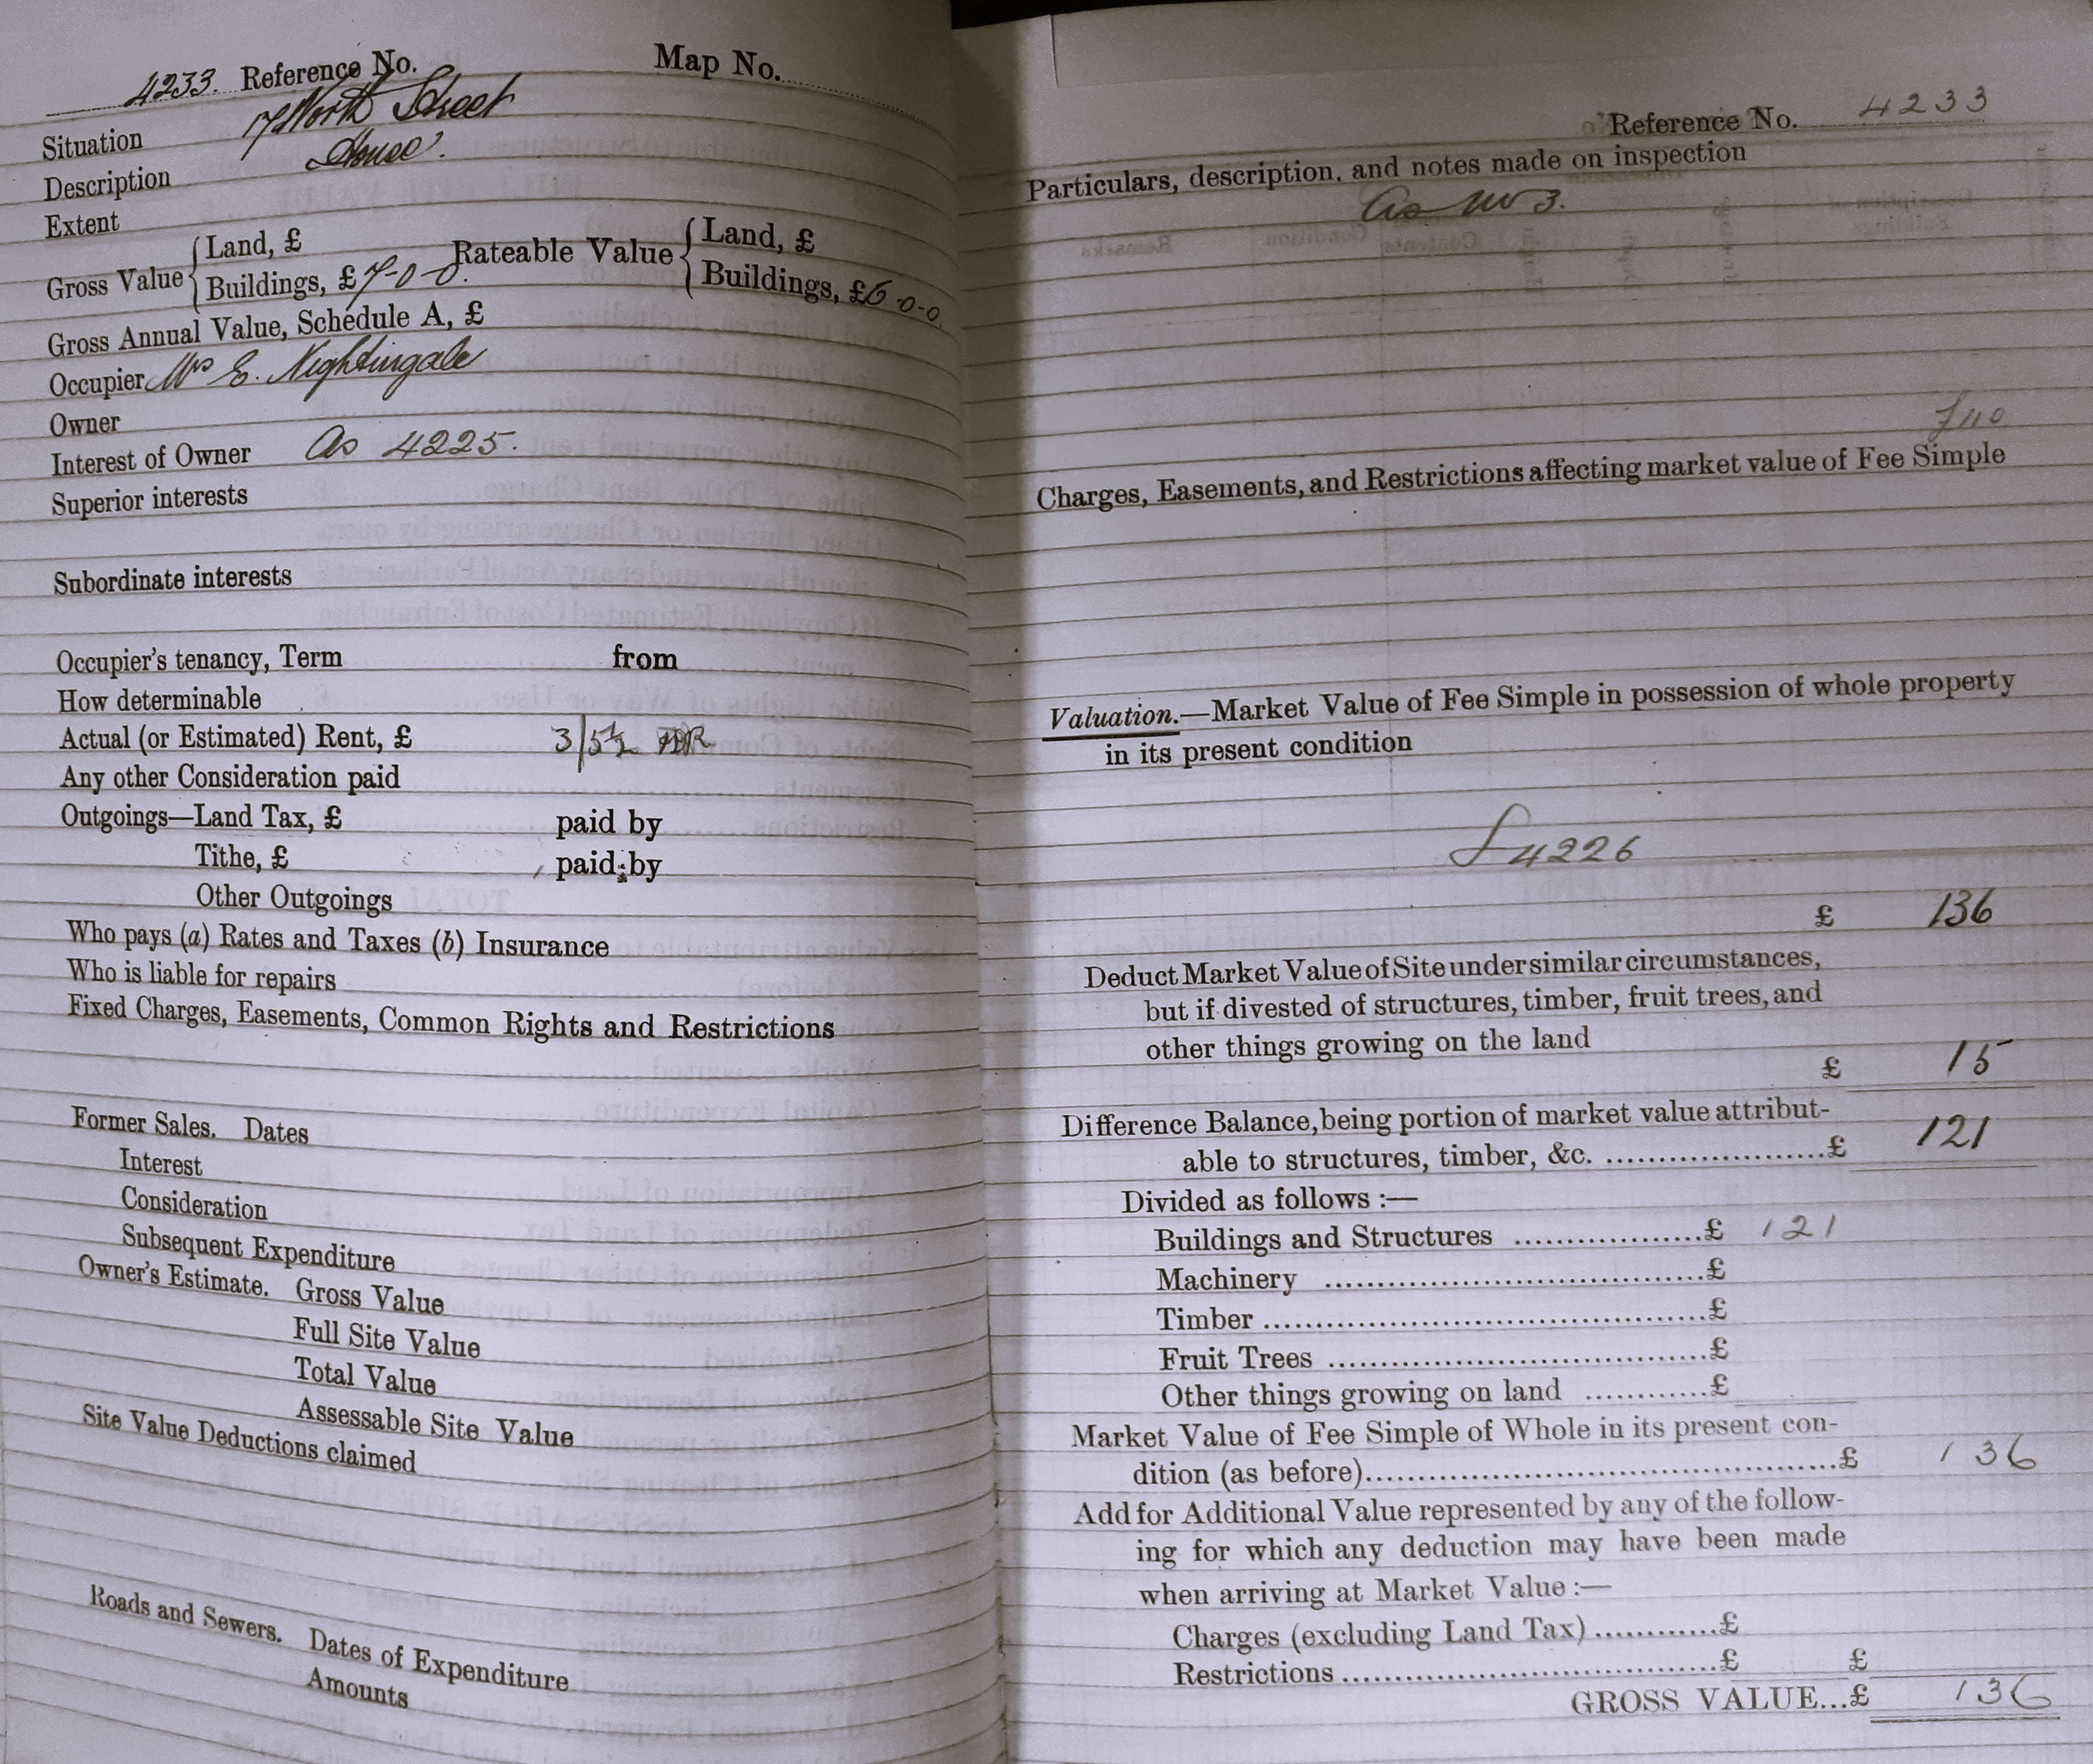 4233. Reference No. Map No.
Situation 17 North Street
Description House
Extent
Gross Value { Land, £ Rateable Value { Land, £
Buildings, £7-0-0. Buildings, £6-0-0.
Gross Annual Value, Schedule A, £
Occupier Mrs E. Nightingale
Owner
Interest of Owner As 4225.
Superior interests
Subordinate interests
Occupier's tenancy, Term from
How determinable
Actual (or Estimated) Rent, £ 3/5½
Any other Consideration paid
Outgoings—Land Tax, £ paid by
Tithe, £ paid by
Other Outgoings
Who pays (a) Rates and Taxes (b) Insurance
Who is liable for repairs
Fixed Charges, Easements, Common Rights and Restrictions
Former Sales. Dates
Interest
Consideration
Subsequent Expenditure
Owner's Estimate. Gross Value
Full Site Value
Total Value
Assessable Site Value
Site Value Deductions claimed
Roads and Sewers. Dates of Expenditure
Amounts
Reference No. 4233
Particulars, description, and notes made on inspection
As No 3.
Charges, Easements, and Restrictions affecting market value of Fee Simple
Valuation.—Market Value of Fee Simple in possession of whole property
in its present condition
4226
£ 136
Deduct Market Value of Site under similar circumstances,
but if divested of structures, timber, fruit trees, and
other things growing on the land
£ 15
Difference Balance, being portion of market value attribut-
able to structures, timber, &c. ......................£ 121
Divided as follows :—
Buildings and Structures ...................£ 121
Machinery ......................................£
Timber ............................................£
Fruit Trees ......................................£
Other things growing on land ............£
Market Value of Fee Simple of Whole in its present con-
dition (as before)...............................................£ 136
Add for Additional Value represented by any of the follow-
ing for which any deduction may have been made
when arriving at Market Value :—
Charges (excluding Land Tax) ............£
Restrictions ......................................£ £
GROSS VALUE...£ 136